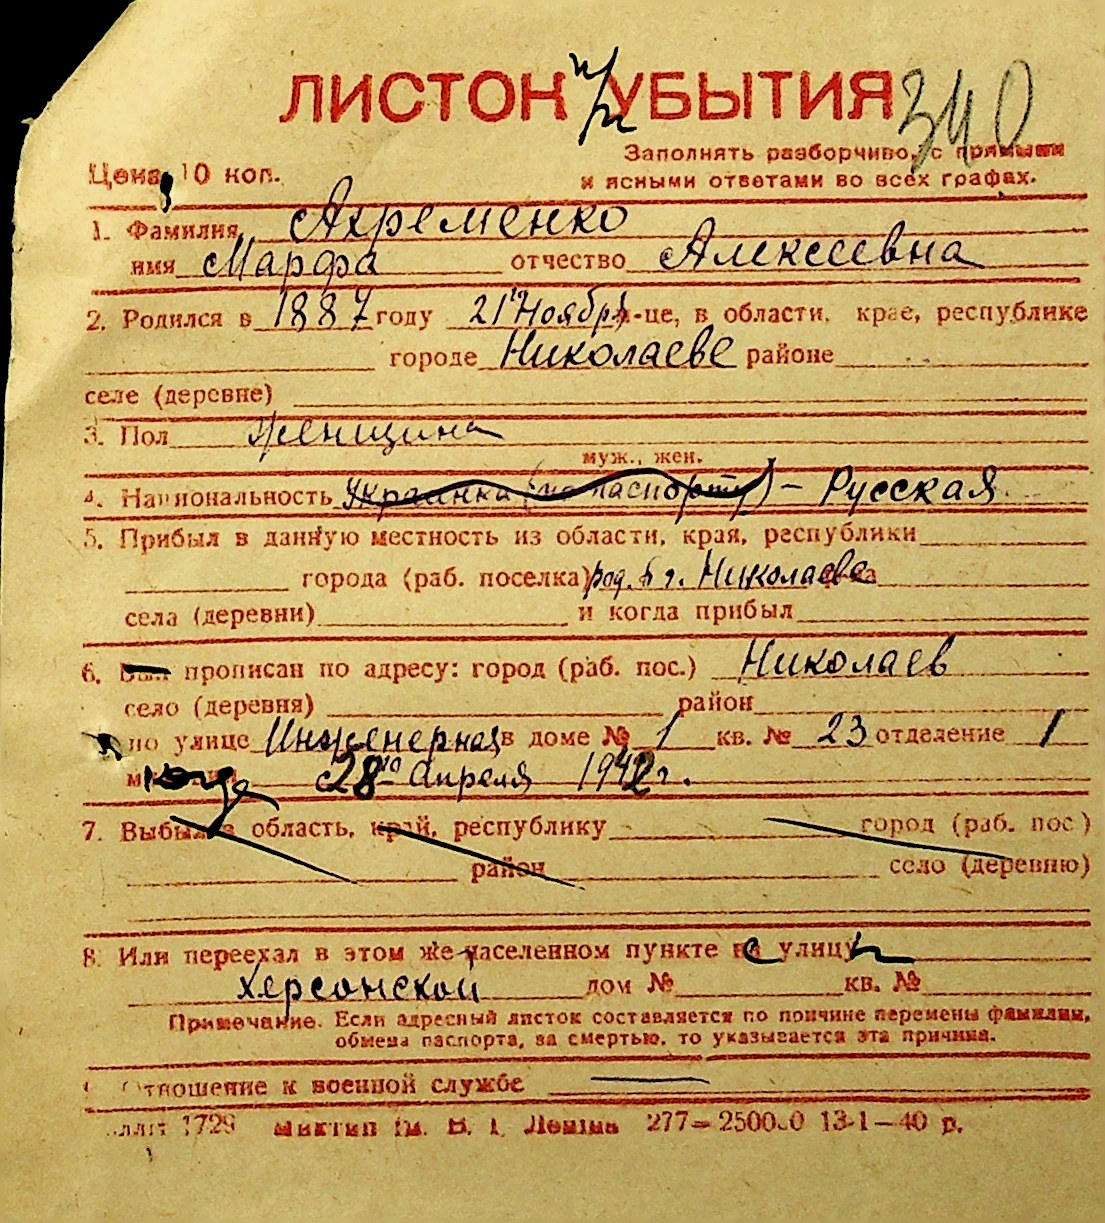 ЛИСТОК УБЫТИЯ 340
Цена 10 коп.
Заполнять разборчиво, с прямыми
и ясными ответами во всех графах.
1. Фамилия Ахременко
имя Марфа отчество Алексеевна
2. Родился в 1887 году 21го Ноября-це, в области, крае, республике
городе Николаеве районе
селе (деревне)
3. Пол женщина
муж., жен.
4. Национальность Украинка (по паспорту) – Русская
5. Прибыл в данную местность из области, края, республики
города (раб. поселка) род. в г. Николаеве
села (деревни) и когда прибыл
6. Был прописан по адресу: город (раб. пос.) Николаев
село (деревня) район
по улице Инженерная в доме № 1 кв. № 23 отделение 1
28го апреля 1942 г.
7. Выбыл в область, край, республику город (раб. пос.)
район село (деревню)
8. Или переехал в этом же населенном пункте с улицы
Херсонской дом № кв. №
Примечание. Если адресный листок составляется по причине перемены фамилии,
обмена паспорта, за смертью, то указывается эта причина.
Отношение к военной службе —
1729 им. В. І. Леніна 277—250000 13-1—40 р.